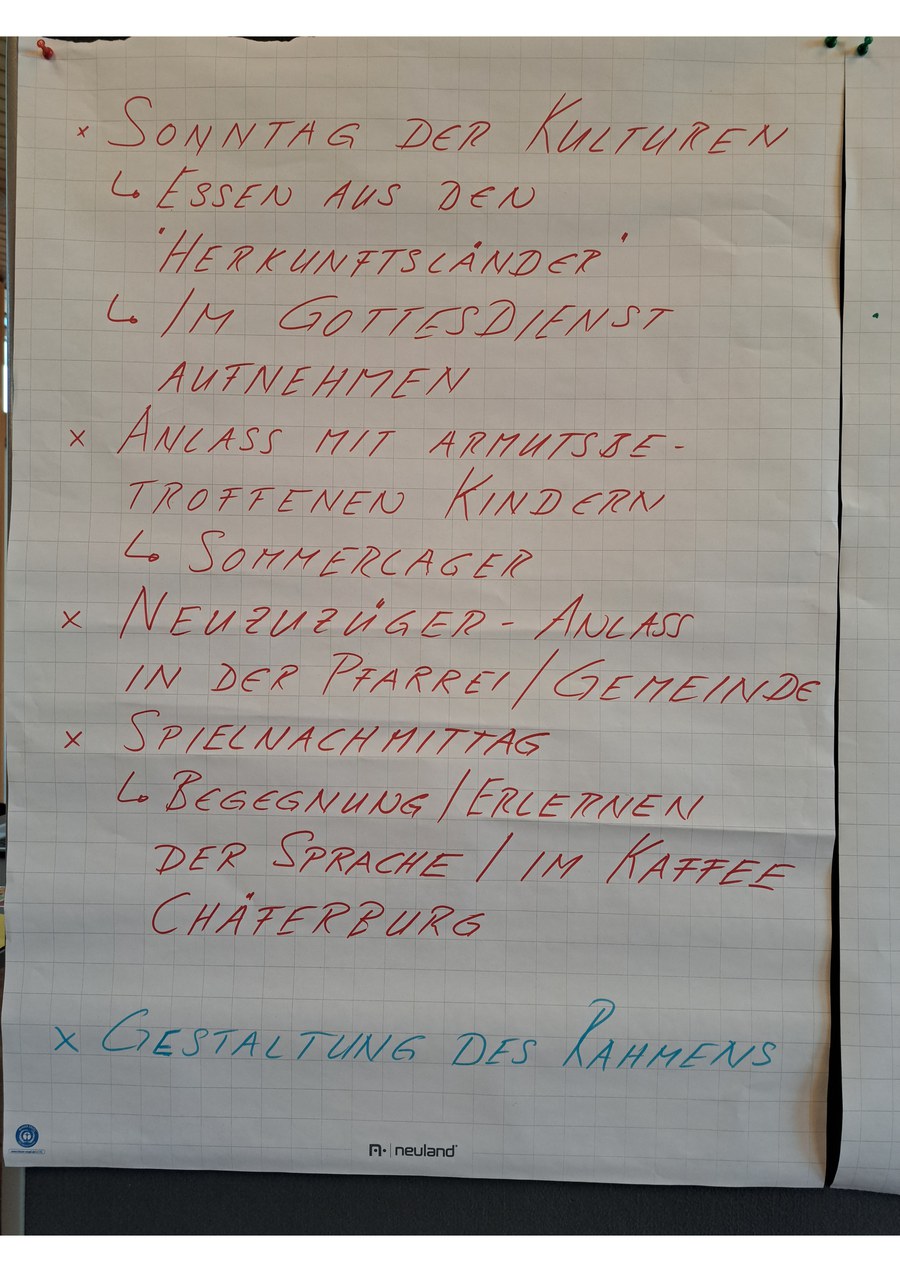 x SONNTAG DER KULTUREN
↳ ESSEN AUS DEN
'HERKUNFTSLÄNDER'
↳ IM GOTTESDIENST
AUFNEHMEN
x ANLASS MIT ARMUTSBE-
TROFFENEN KINDERN
↳ SOMMERLAGER
x NEUZUZÜGER - ANLASS
IN DER PFARREI / GEMEINDE
x SPIELNACHMITTAG
↳ BEGEGNUNG / ERLERNEN
DER SPRACHE / IM KAFFEE
CHÄFERBURG
x GESTALTUNG DES RAHMENS
neuland